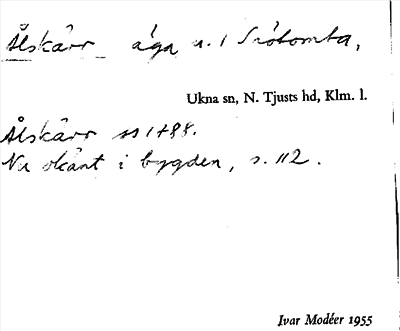 Ålskärr äga u. / Siötomta,
Ukna sn, N. Tjusts hd, Klm. l.
Ålskärr ss 1788.
Nu okänt i bygden, s. 112.
Ivar Modéer 1955